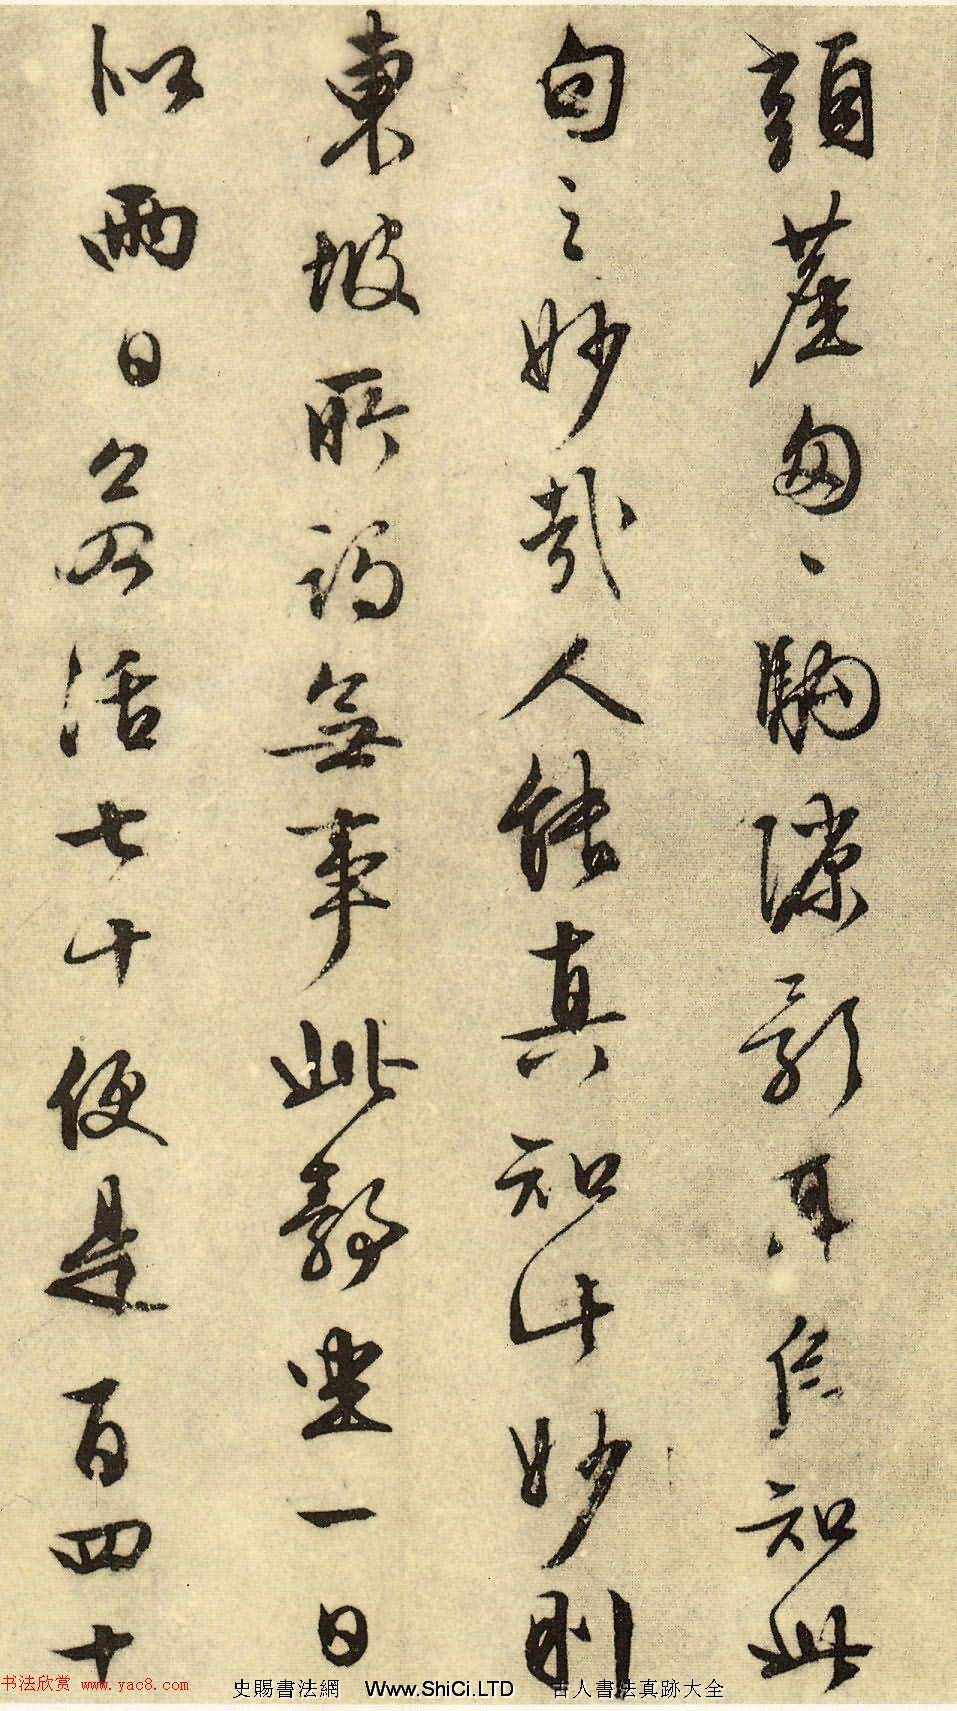 頭塵匆〻駒隙影耳信知此
句之妙哉人能真知此妙則
東坡所謂無事此靜坐一日
似兩日若活七十便是百四十
书法欣赏 www.yac8.com
史賜書法網 Www.ShiCi.LTD 古人書法真跡大全